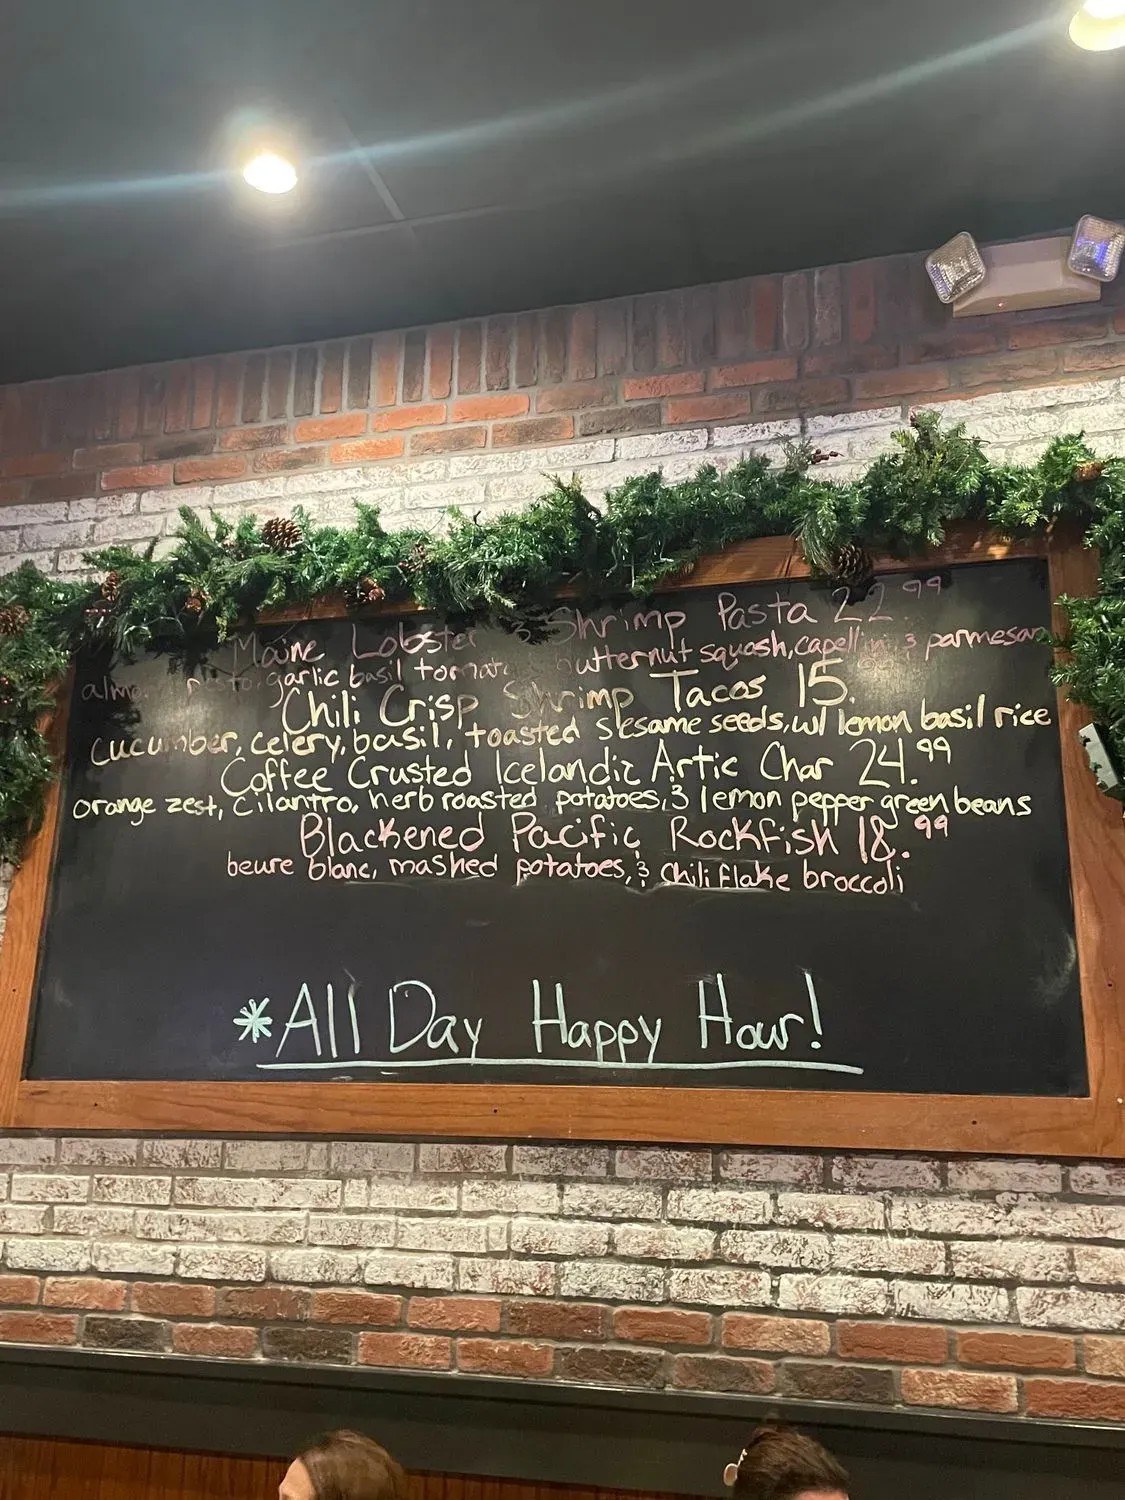 Maine Lobster & Shrimp Pasta 22.99
garlic basil tomato butternut squash, capellini, & parmesan
Chili Crisp Shrimp Tacos 15.99
cucumber, celery, basil, toasted sesame seeds, w/ lemon basil rice
Coffee Crusted Icelandic Artic Char 24.99
orange zest, cilantro, herb roasted potatoes, & lemon pepper green beans
Blackened Pacific Rockfish 18.99
beure blanc, mashed potatoes, & chili flake broccoli
*All Day Happy Hour!